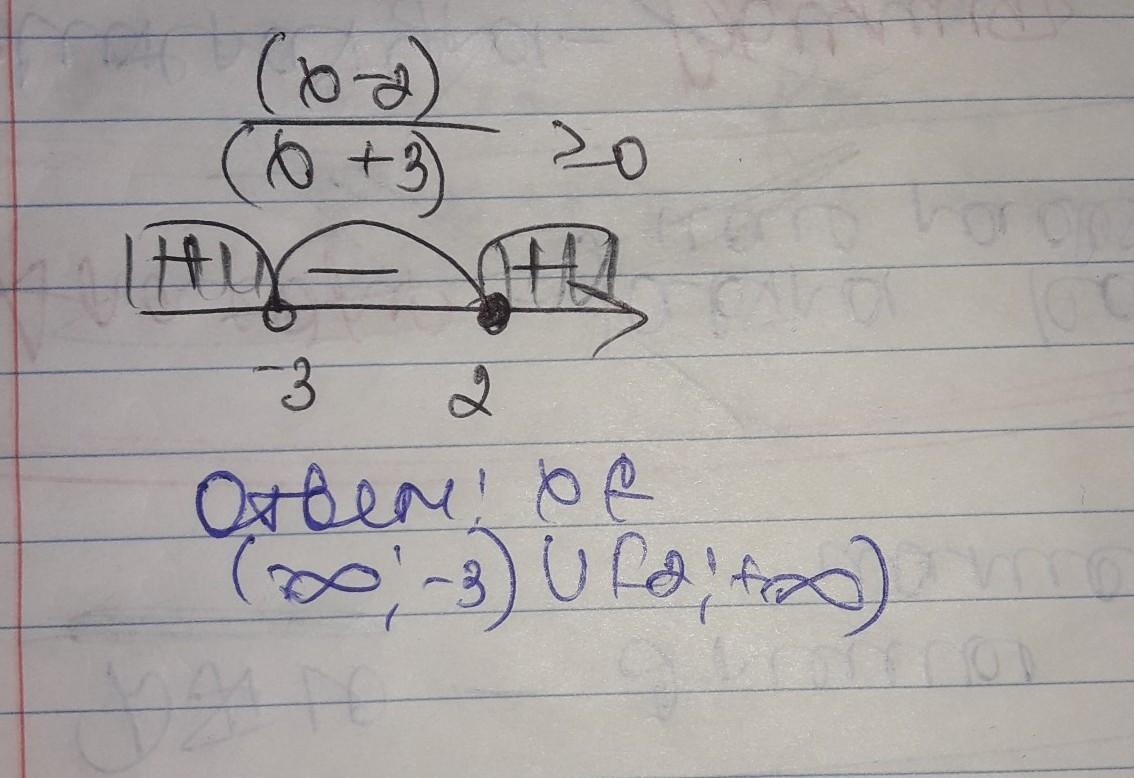 (x-2)
(x+3) ≥0
+ − +
-3 2
Ответ: x ∈
(∞; -3) ∪ [2; +∞)